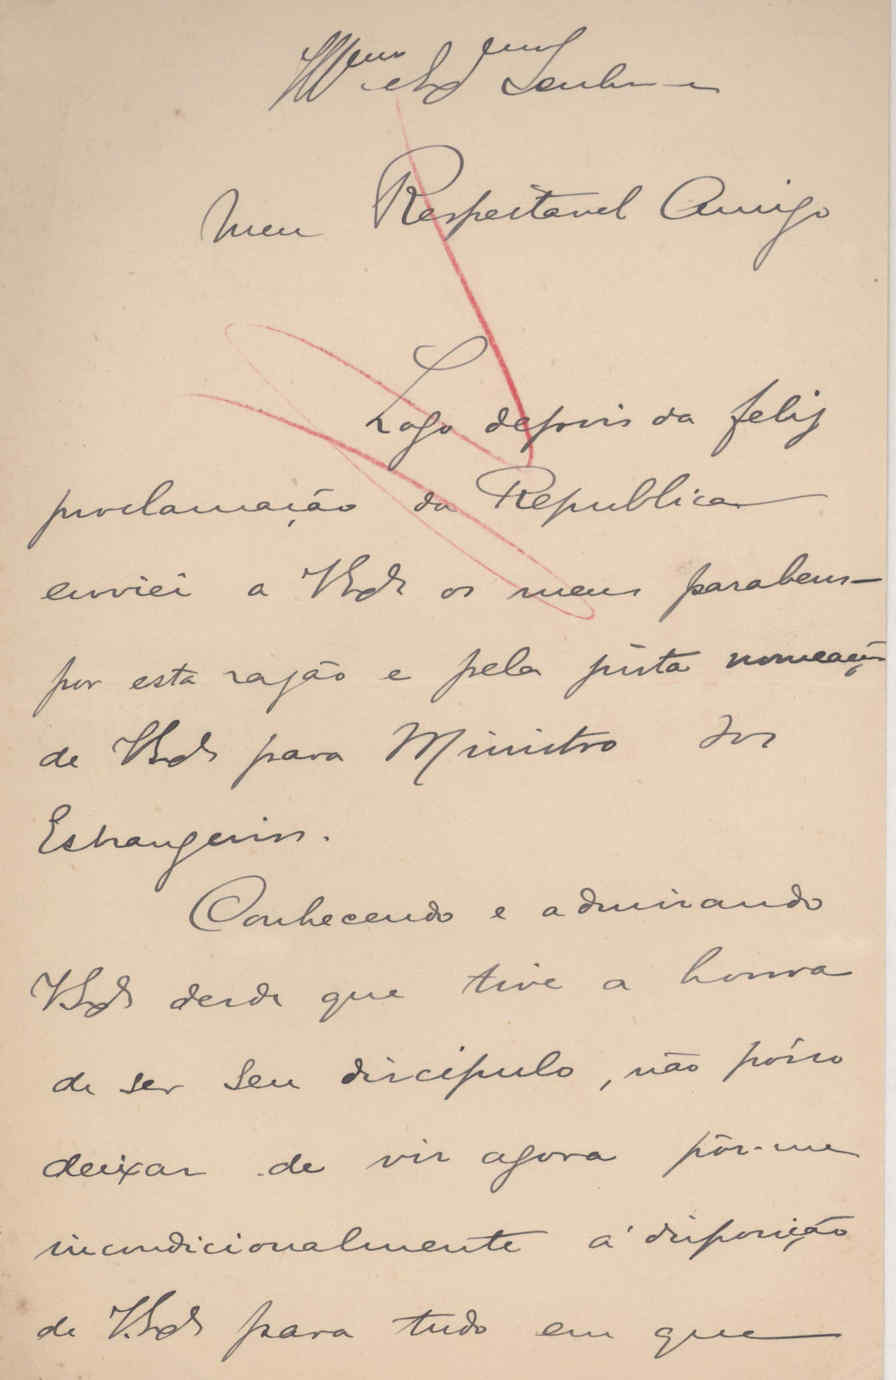 Illmo e Exmo Senhor
Meu Respeitavel Amigo
Logo depois da feliz
proclamação da Republica
enviei a V.Exa os meus parabens
por esta razão e pela justa nomeação
de V.Exa para Ministro dos
Estrangeiros.
Conhecendo e admirando
V.Exa desde que tive a honra
de ser seu discipulo, não pósso
deixar de vir agora pôr-me
incondicionalmente á disposição
de V.Exa para tudo em que